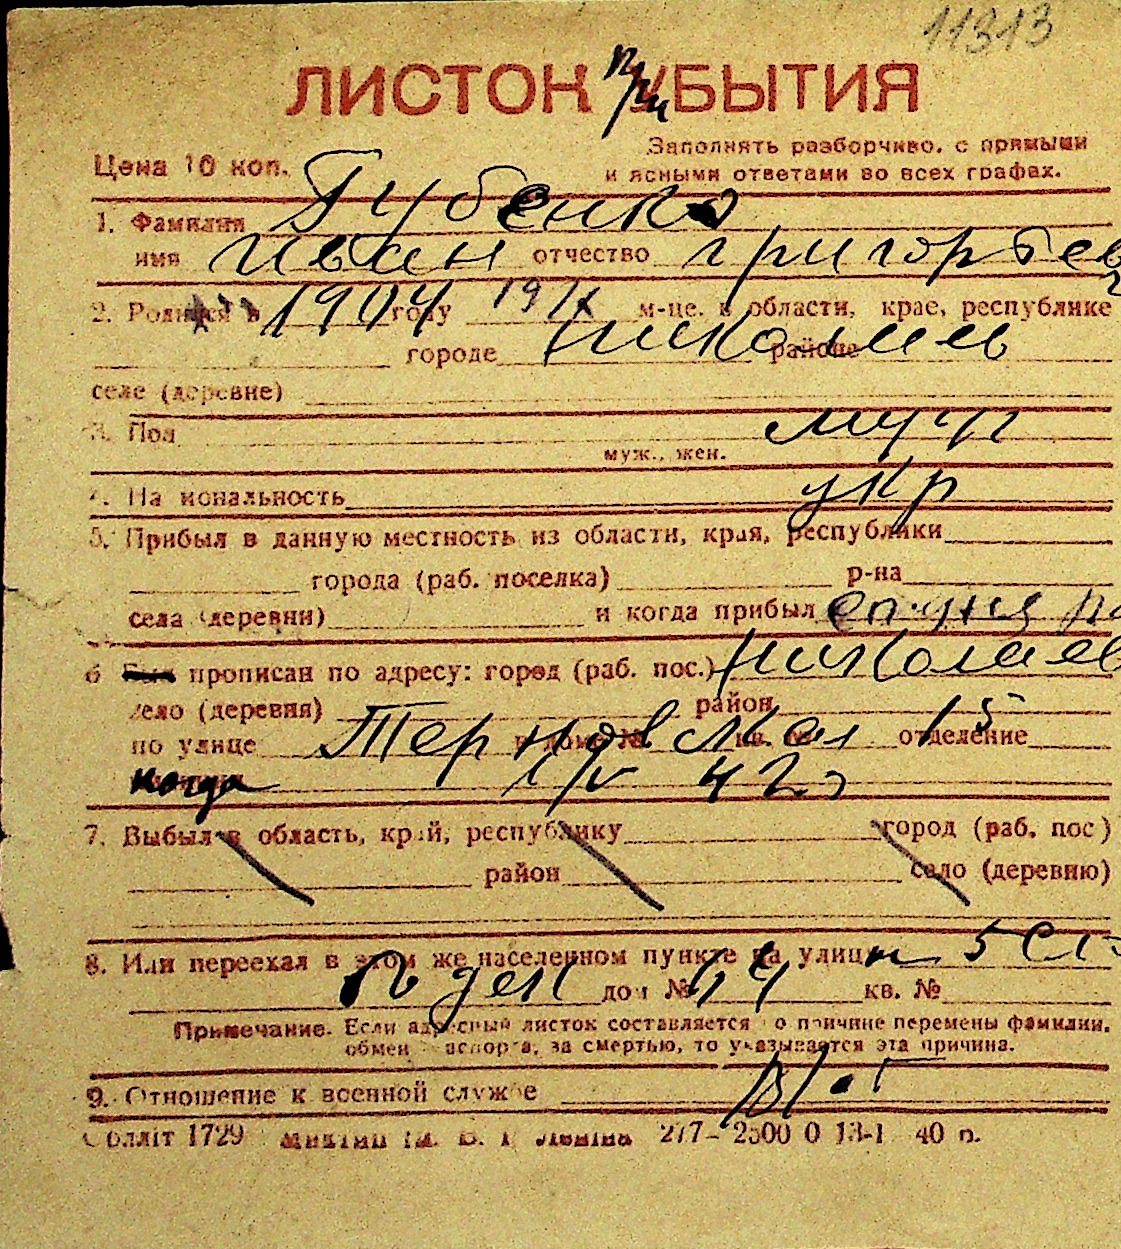 11313
ЛИСТОК УБЫТИЯ
при
Заполнять разборчиво, с прямыми
Цена 10 коп.
и ясными ответами во всех графах.
1. Фамилия Губенко
имя Иван отчество Григорьев
2. Родился в 1904 году 19/IX м-це. в области, крае, республике
городе Николаев районе
селе (деревне)
3. Пол муч
муж., жен.
4. Национальность укр
5. Прибыл в данную местность из области, края, республики
города (раб. поселка) р-на
села (деревни) и когда прибыл
6 Был прописан по адресу: город (раб. пос.) Николаев
село (деревня) район
по улице Терновская в доме № кв. № 15 отделение
когда 1/V 42
7. Выбыл в область, край, республику город (раб. пос)
район село (деревню)
8. Или переехал в этом же населенном пункте на улицу
дом № 64 кв. №
Примечание. Если адресный листок составляется по причине перемены фамилии,
обмен паспорта, за смертью, то указывается эта причина.
9. Отношение к военной службе
Обліт 1729 277- 2500 0 13-1 40 п.